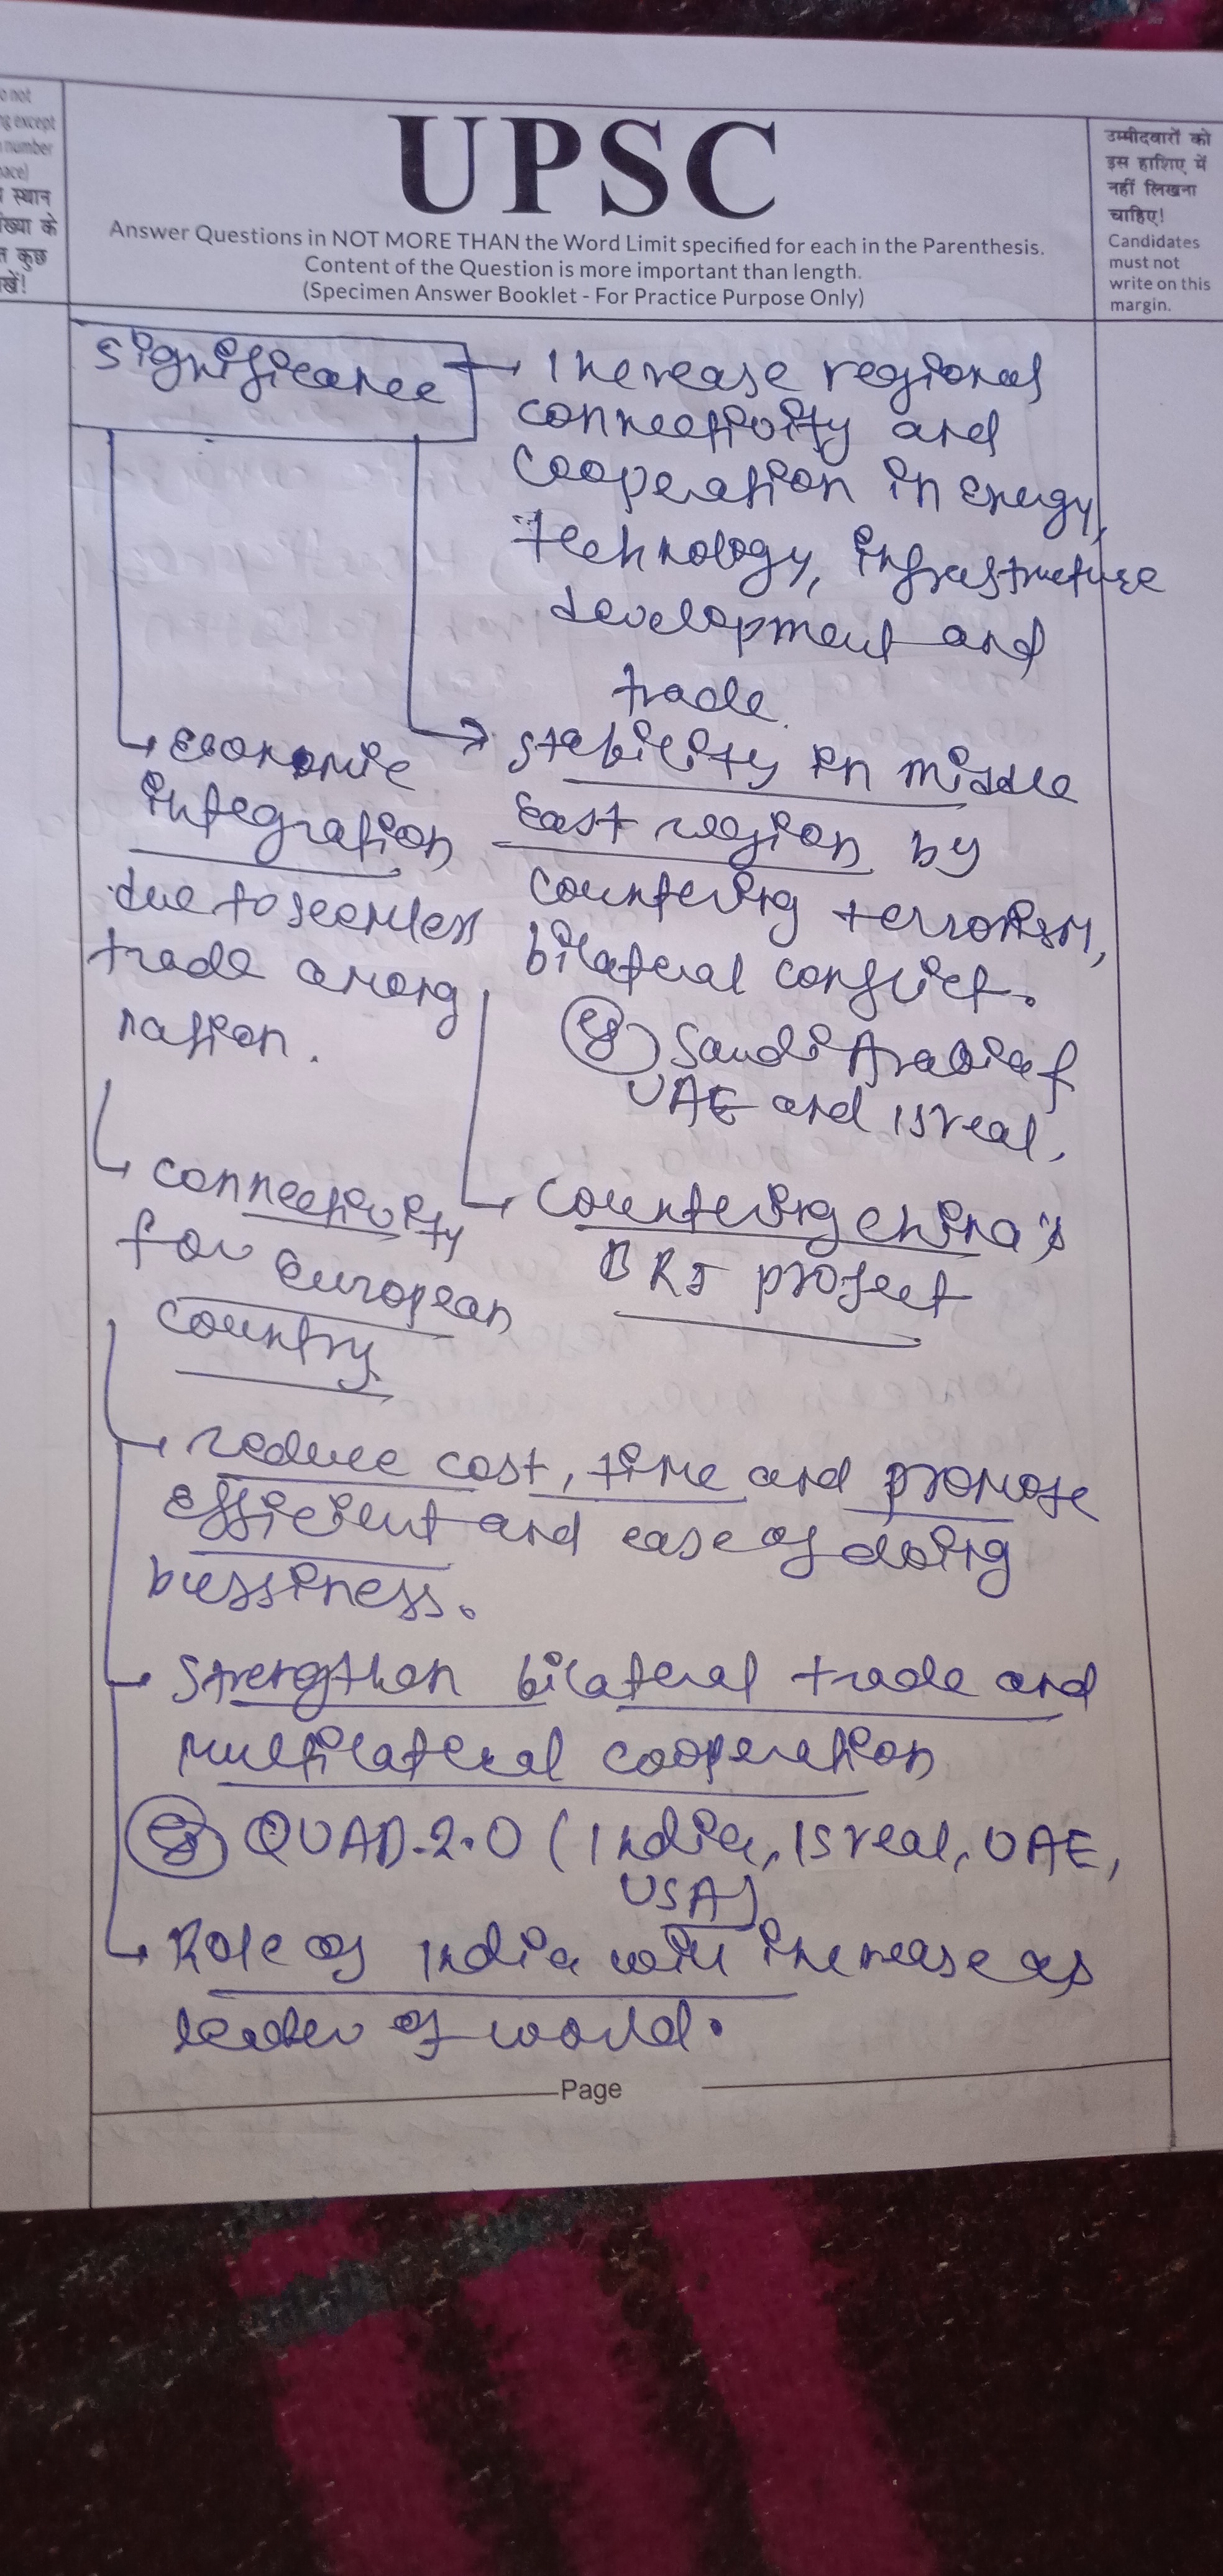 o not
ng except
number
pace)
स्थान
ंख्या के
कुछ
खें!
UPSC
Answer Questions in NOT MORE THAN the Word Limit specified for each in the Parenthesis.
Content of the Question is more important than length.
(Specimen Answer Booklet - For Practice Purpose Only)
उम्मीदवारों को
इस हाशिए में
नहीं लिखना
चाहिए!
Candidates
must not
write on this
margin.
significance
Increase regional
connectivity and
cooperation in Energy,
technology, infrastructure
development and
trade.
Economic
integration
due to seemless
trade among
nation.
stability in middle
East region by
countering terrorism,
bilateral conflict.
eg Saudi Arabia &
UAE and isreal.
connectivity
for European
country
countering china's
BRI project
reduce cost, time and promote
efficient and ease of doing
bussiness.
Strengthen bilateral trade and
multilateral cooperation
eg QUAD-2.0 (India, isreal, UAE,
USA)
Role of India will increase as
leader of world.
Page